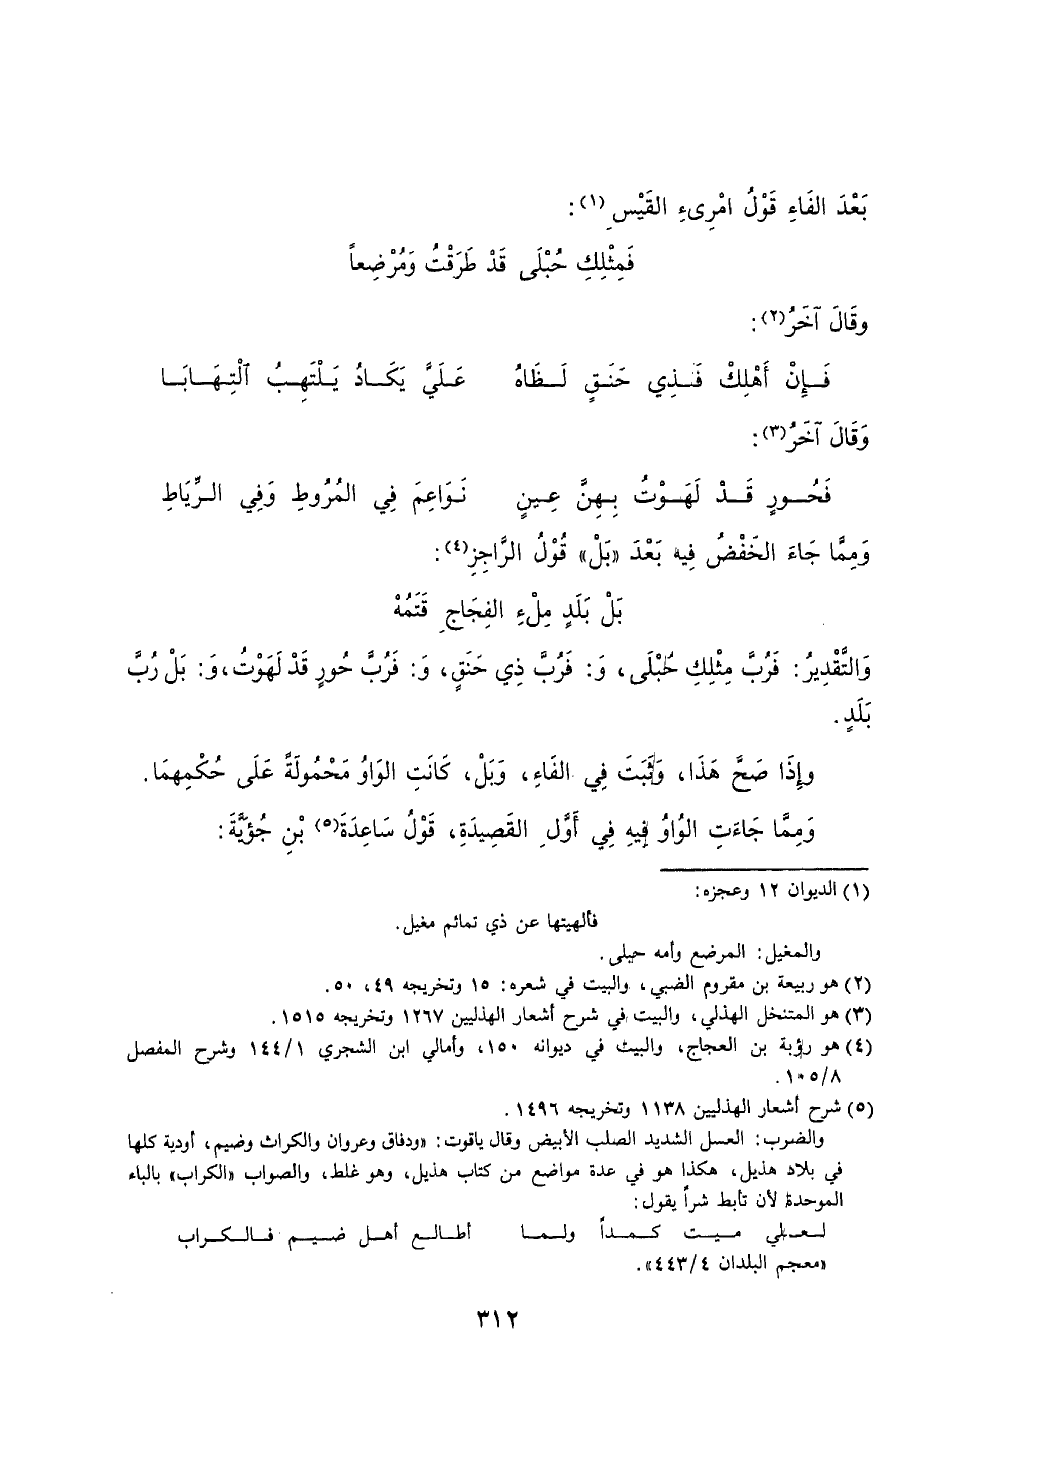 بَعْدَ الفَاءِ قَوْلُ امْرِىءِ القَيْسِ(١):
فَمِثْلِكِ حُبْلَى قَدْ طَرَقْتُ وَمُرْضِعاً
وقَالَ آخَرُ(٢):
فَإِنْ أَهْلِكْ فَذِي حَنَقٍ لَظَاهُ عَلَيَّ يَكَادُ يَلْتَهِبُ ٱلْتِهَابَا
وَقَالَ آخَرُ(٣):
فَحُورٍ قَدْ لَهَوْتُ بِهِنَّ عِينٍ نَوَاعِمَ فِي المُرُوطِ وَفِي الرِّيَاطِ
وَمِمَّا جَاءَ الخَفْضُ فِيه بَعْدَ «بَلْ» قُوْلُ الرَّاجِزِ(٤):
بَلْ بَلَدٍ مِلْءِ الفِجَاجِ قَتَمُهْ
وَالتَّقْدِيرُ: فَرُبَّ مِثْلِكِ حُبْلَى، وَ: فَرُبَّ ذِي حَنَقٍ، وَ: فَرُبَّ حُورٍ قَدْ لَهَوْتُ،وَ: بَلْ رُبَّ
بَلَدٍ.
وإِذَا صَحَّ هَذَا، وَثَبَتَ فِي الفَاءِ، وَبَلْ، كَانَتِ الوَاوُ مَحْمُولَةً عَلَى حُكْمِهِمَا.
وَمِمَّا جَاءَتِ الوَاوُ فِيهِ فِي أَوَّلِ القَصِيدَةِ، قَوْلُ سَاعِدَةَ(٥) بْنِ جُؤَيَّةَ:
(١) الديوان ١٢ وعجزه:
فألهيتها عن ذي تمائم مغيل.
والمغيل: المرضع وأمه حبلى.
(٢) هو ربيعة بن مقروم الضبي، والبيت في شعره: ١٥ وتخريجه ٤٩، ٥٠.
(٣) هو المتنخل الهذلي، والبيت في شرح أشعار الهذليين ١٢٦٧ وتخريجه ١٥١٥.
(٤) هو رؤبة بن العجاج، والبيت في ديوانه ١٥٠، وأمالي ابن الشجري ١٤٤/١ وشرح المفصل
١٠٥/٨.
(٥) شرح أشعار الهذليين ١١٣٨ وتخريجه ١٤٩٦.
والضرب: العسل الشديد الصلب الأبيض وقال ياقوت: «ودفاق وعروان والكراث وضيم، أودية كلها
في بلاد هذيل، هكذا هو في عدة مواضع من كتاب هذيل، وهو غلط، والصواب «الكراب» بالباء
الموحدة لأن تأبط شراً يقول:
لعلي ميت كمداً ولما أطالع أهل ضيم فالكراب
«معجم البلدان ٤٤٣/٤».
٣١٢